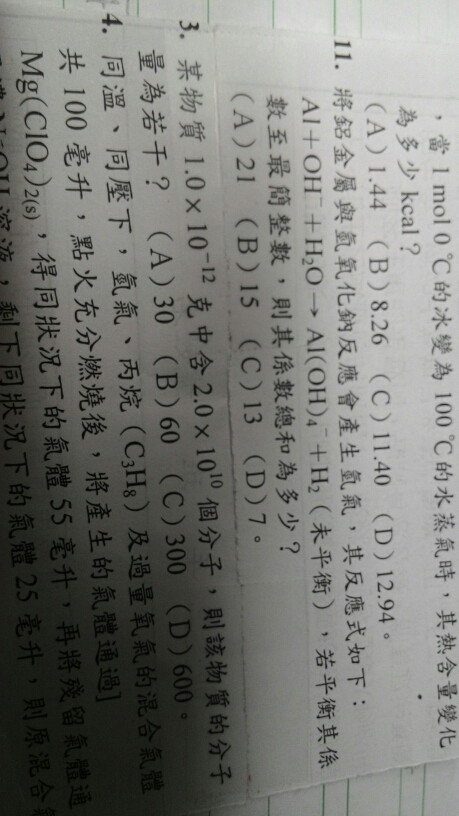 ，當1 mol 0 ℃的冰變為100 ℃的水蒸氣時，其熱含量變化
為多少kcal？
（A）1.44 （B）8.26 （C）11.40 （D）12.94。
11. 將鋁金屬與氫氧化鈉反應會產生氫氣，其反應式如下：
Al＋OH⁻＋H₂O → Al(OH)₄⁻＋H₂（未平衡），若平衡其係
數至最簡整數，則其係數總和為多少？
（A）21 （B）15 （C）13 （D）7。
3. 某物質 1.0 × 10⁻¹² 克中含 2.0 × 10¹⁰ 個分子，則該物質的分子
量為若干？ （A）30 （B）60 （C）300 （D）600。
4. 同溫、同壓下，氫氣、丙烷（C₃H₈）及過量氧氣的混合氣體
共 100 毫升，點火充分燃燒後，將產生的氣體通過
Mg(ClO₄)₂(s)，得同狀況下的氣體 55 毫升，再將殘留氣體通
溶液，剩下同狀況下的氣體 25 毫升，則原混合